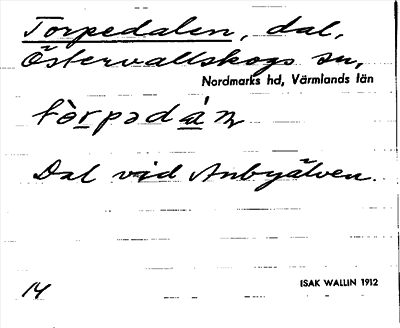 Torpedalen, dal,
Östervallskogs sn,
Nordmarks hd, Värmlands län
Dal vid Anbyälven.
14
ISAK WALLIN 1912